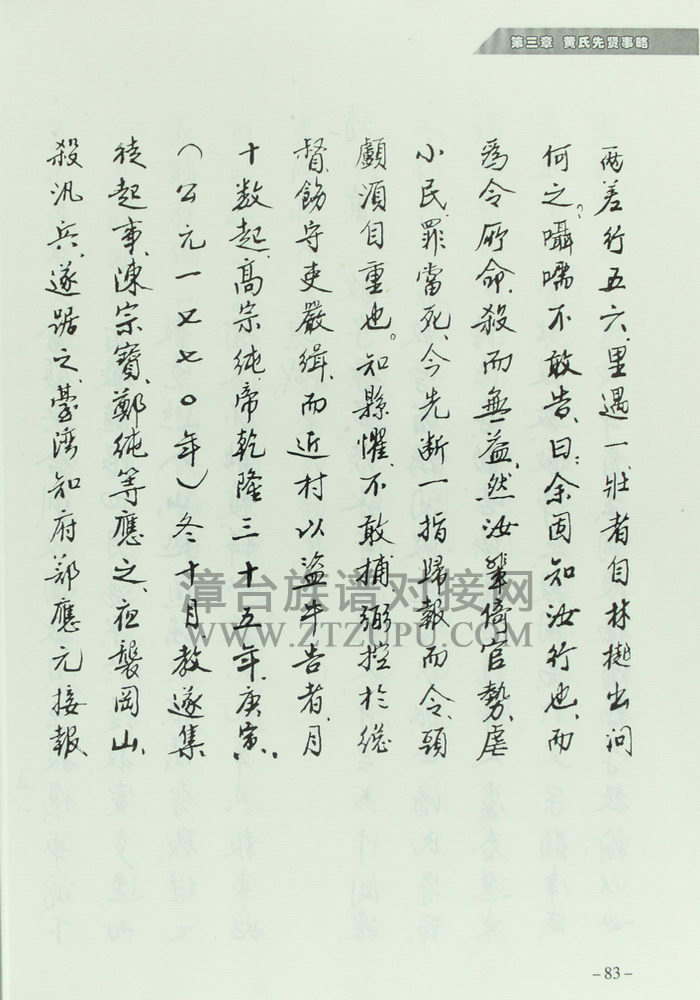 第三章 黄氏先贤事略
两差行五六里遇一壯者自林樾出问
何之？囁嚅不敢告、曰：余固知汝行也、而
爲令所命、殺而無益、然汝輩倚官勢、虐
小民、罪當死、今先断一指歸報而令、頭
顱須自重也。知縣懼、不敢捕、弼控於總
督、飭守吏嚴缉、而近村以盗牛告者、月
十数起、高宗纯帝乾隆三十五年、庚寅、
（公元一七七〇年）冬十月、教遂集
徒起事、陳宗寶、鄭纯等應之、夜襲岡山、
殺汛兵、遂踞之、臺湾知府鄒應元接報、
漳台族谱对接网
WWW.ZTZUPU.COM
-83-